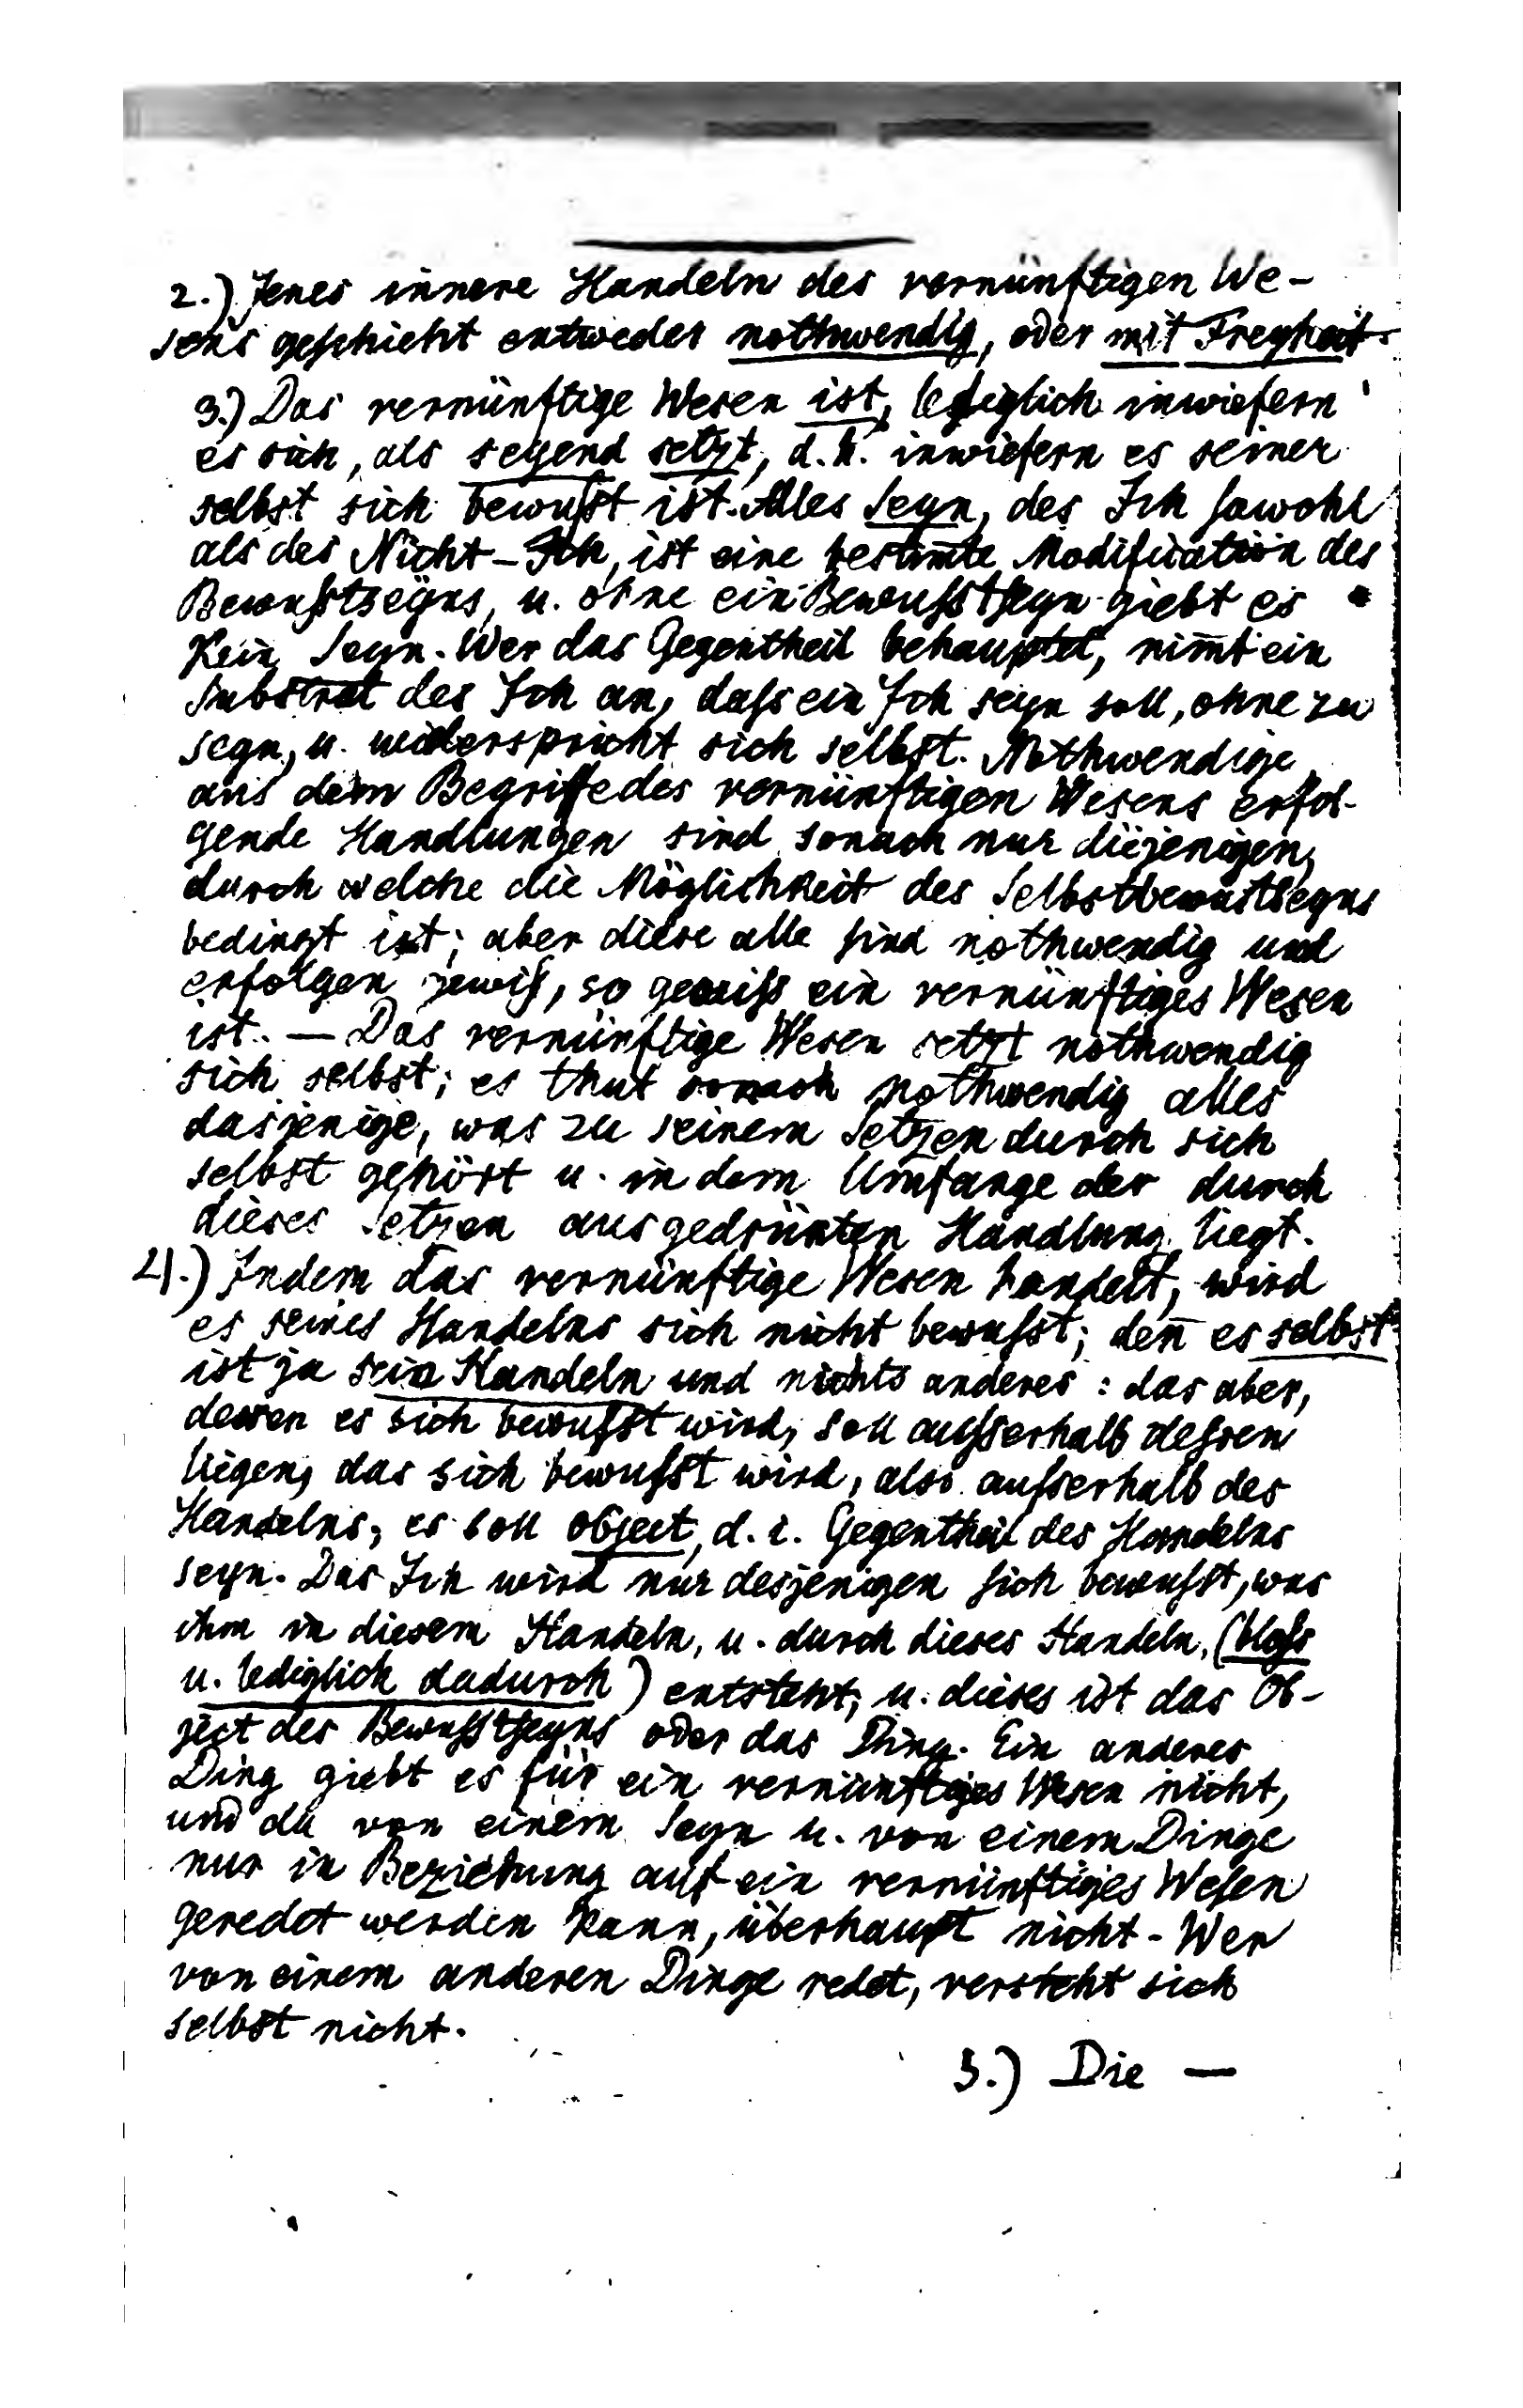 2.) Jenes innere Handeln des vernünftigen We-
sens geschieht entweder nothwendig, oder mit Freyheit.
3.) Das vernünftige Wesen ist, lediglich inwiefern
es sich, als seyend setzt, d.h. inwiefern es seiner
selbst sich bewußt ist. Alles Seyn, des Ich sowohl
als des Nicht-Ich, ist eine bestim̄te Modification des
Bewußtseyns, u. ohne ein Bewußtseyn giebt es
kein Seyn. Wer das Gegentheil behauptet, nim̄t ein
Substrat des Ich an, daß ein Ich seyn soll, ohne zu
seyn, u. widerspricht sich selbst. Nothwendige
aus dem Begriffe des vernünftigen Wesens erfol-
gende Handlungen sind sonach nur diejenigen,
durch welche die Möglichkeit des Selbstbewustseyns
bedingt ist; aber diese alle sind nothwendig und
erfolgen gewiß, so gewiß ein vernünftiges Wesen
ist. — Das vernünftige Wesen setzt nothwendig
sich selbst; es thut sonach nothwendig alles
dasjenige, was zu seinem Setzen durch sich
selbst gehört u. in dem Umfange der durch
dieses Setzen ausgedrükten Handlung liegt.
4.) Indem das vernünftige Wesen handelt, wird
es seines Handelns sich nicht bewußt; den̄ es selbst
ist ja sein Handeln und nichts anderes: das aber,
dessen es sich bewußt wird, soll außerhalb deßen
liegen, das sich bewußt wird, also außerhalb des
Handelns, es soll object, d. i. Gegentheil des Handelns
seyn. Das Ich wird nur desjenigen sich bewußt, was
ihm in diesem Handeln, u. durch dieses Handeln, (bloß
u. lediglich dadurch) entsteht; u. dieses ist das Ob-
ject des Bewußtseyns oder das Ding. Ein anderes
Ding giebt es für ein vernünftiges Wesen nicht,
und da von einem Seyn u. von einem Dinge
nur in Beziehung auf ein vernünftiges Wesen
geredet werden kann, überhaupt nicht. Wer
von einem anderen Dinge redet, versteht sich
selbst nicht.
5.) Die —